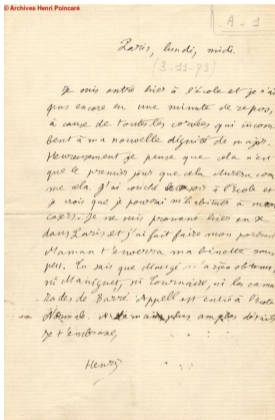 © Archives Henri Poincaré
A - 1
Paris, lundi, midi.
(3-11-73)
Je suis entré hier à l'École et je n'ai
pas encore eu une minute de repos,
à cause de toutes les corvées qui incom
bent à ma nouvelle dignité de major.
Heureusement je pense que cela n'est
que le premier jour que cela durera com
me cela. J'ai couché à l'École et
je crois que je pourrai m'habituer à mon
Je me suis promené hier
dans Paris et j'ai fait faire mon portrait
Maman t'enverra ma binette sous
peu. Tu sais que n'a rien obtenu,
ni ni Tournaire, ni les cama
rades de Barré. Appell est entré à l'École
Normale. A demain plus amples détails
Je t'embrasse,
Henri